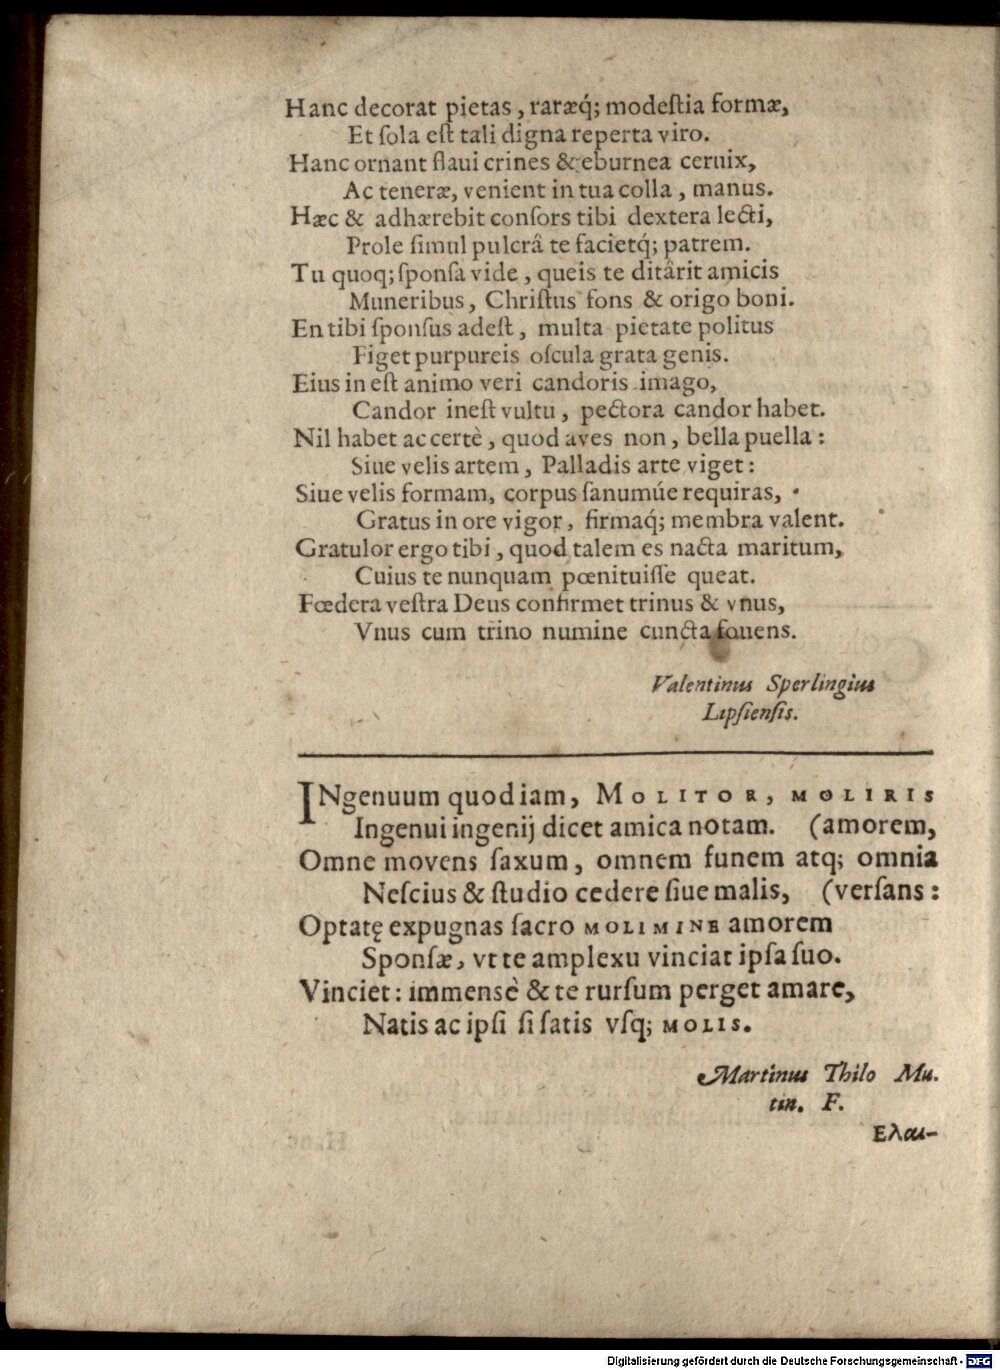 Hanc decorat pietas, raræq́; modeſtia formæ,
Et ſola eſt tali digna reperta viro.
Hanc ornant flaui crines & eburnea ceruix,
Ac teneræ, venient in tua colla, manus.
Hæc & adhærebit conſors tibi dextera lecti,
Prole ſimul pulcrâ te facietq́; patrem.
Tu quoq; ſponſa vide, queis te ditârit amicis
Muneribus, Chriſtus fons & origo boni.
En tibi ſponſus adeſt, multa pietate politus
Figet purpureis oſcula grata genis.
Eius in eſt animo veri candoris imago,
Candor ineſt vultu, pectora candor habet.
Nil habet ac certè, quod aves non, bella puella:
Siue velis artem, Palladis arte viget:
Siue velis formam, corpus ſanumúe requiras,
Gratus in ore vigor, firmaq́; membra valent.
Gratulor ergo tibi, quod talem es nacta maritum,
Cuius te nunquam pœnituiſſe queat.
Fœdera veſtra Deus confirmet trinus & vnus,
Vnus cum trino numine cuncta fouens.
Valentinus Sperlingius
Lipſienſis.
INgenuum quod iam, MOLITOR, MOLIRIS
Ingenui ingenij dicet amica notam. (amorem,
Omne movens ſaxum, omnem funem atq; omnia
Neſcius & ſtudio cedere ſiue malis, (verſans:
Optatę expugnas ſacro MOLIMINE amorem
Sponſæ, vt te amplexu vinciat ipſa ſuo.
Vinciet: immensè & te rurſum perget amare,
Natis ac ipſi ſi ſatis vſq; MOLIS.
Martinus Thilo Mu.
tin. F.
Ελαι-
Digitalisierung gefördert durch die Deutsche Forschungsgemeinschaft - DFG